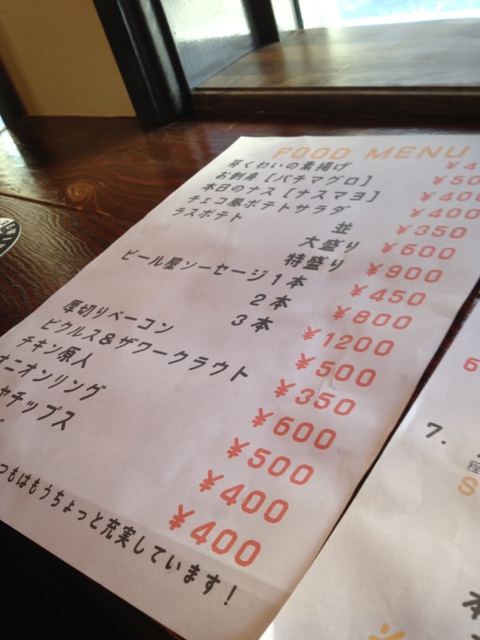 FOOD MENU
早くわいの素揚げ ¥4
お刺身［バチマグロ］ ¥50
本日のナス［ナスマヨ］ ¥400
チェコ風ポテトサラダ ¥400
ラスポテト 並 ¥350
大盛り ¥600
特盛り ¥900
ビール屋ソーセージ1本 ¥450
2本 ¥800
3本 ¥1200
厚切りベーコン ¥500
ピクルス&ザワークラウト ¥350
チキン南人 ¥600
オニオンリング ¥500
ャチップス ¥400
¥400
つもはもうちょっと充実しています!
7.
程
S
本